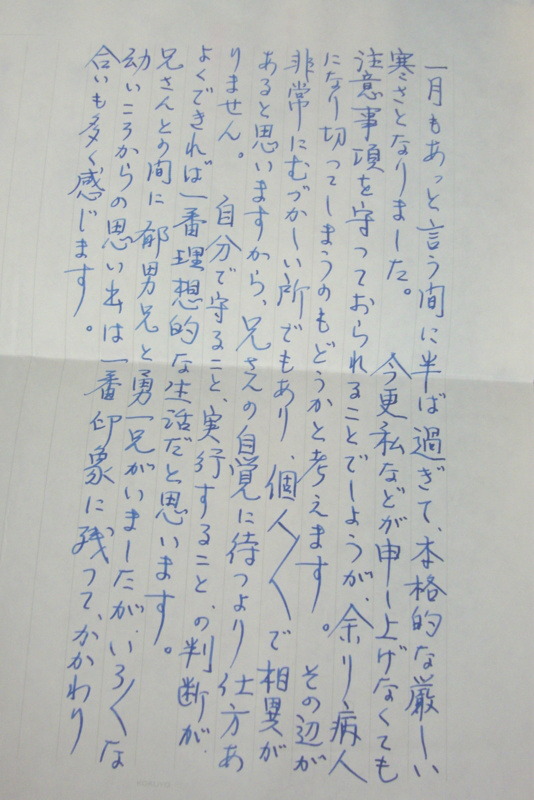 一月もあっと言う間に半ば過ぎて、本格的な厳しい
寒さとなりました。　今更私などが申し上げなくても
注意事項を守っておられることでしようが、余り病人
になり切ってしまうのもどうかと考えます。　その辺が
非常にむづかしい所でもあり、個人〱で相異が
あると思いますから、兄さんの自覚に待つより仕方あ
りません。　自分で守ること、実行すること、の判断が
よくできれば一番理想的な生活だと思います。
兄さんとの間に郁男兄と勇一兄がいましたが、いろ〱な
幼いころからの思い出は一番印象に残って、かかわり
合いも多く感じます。